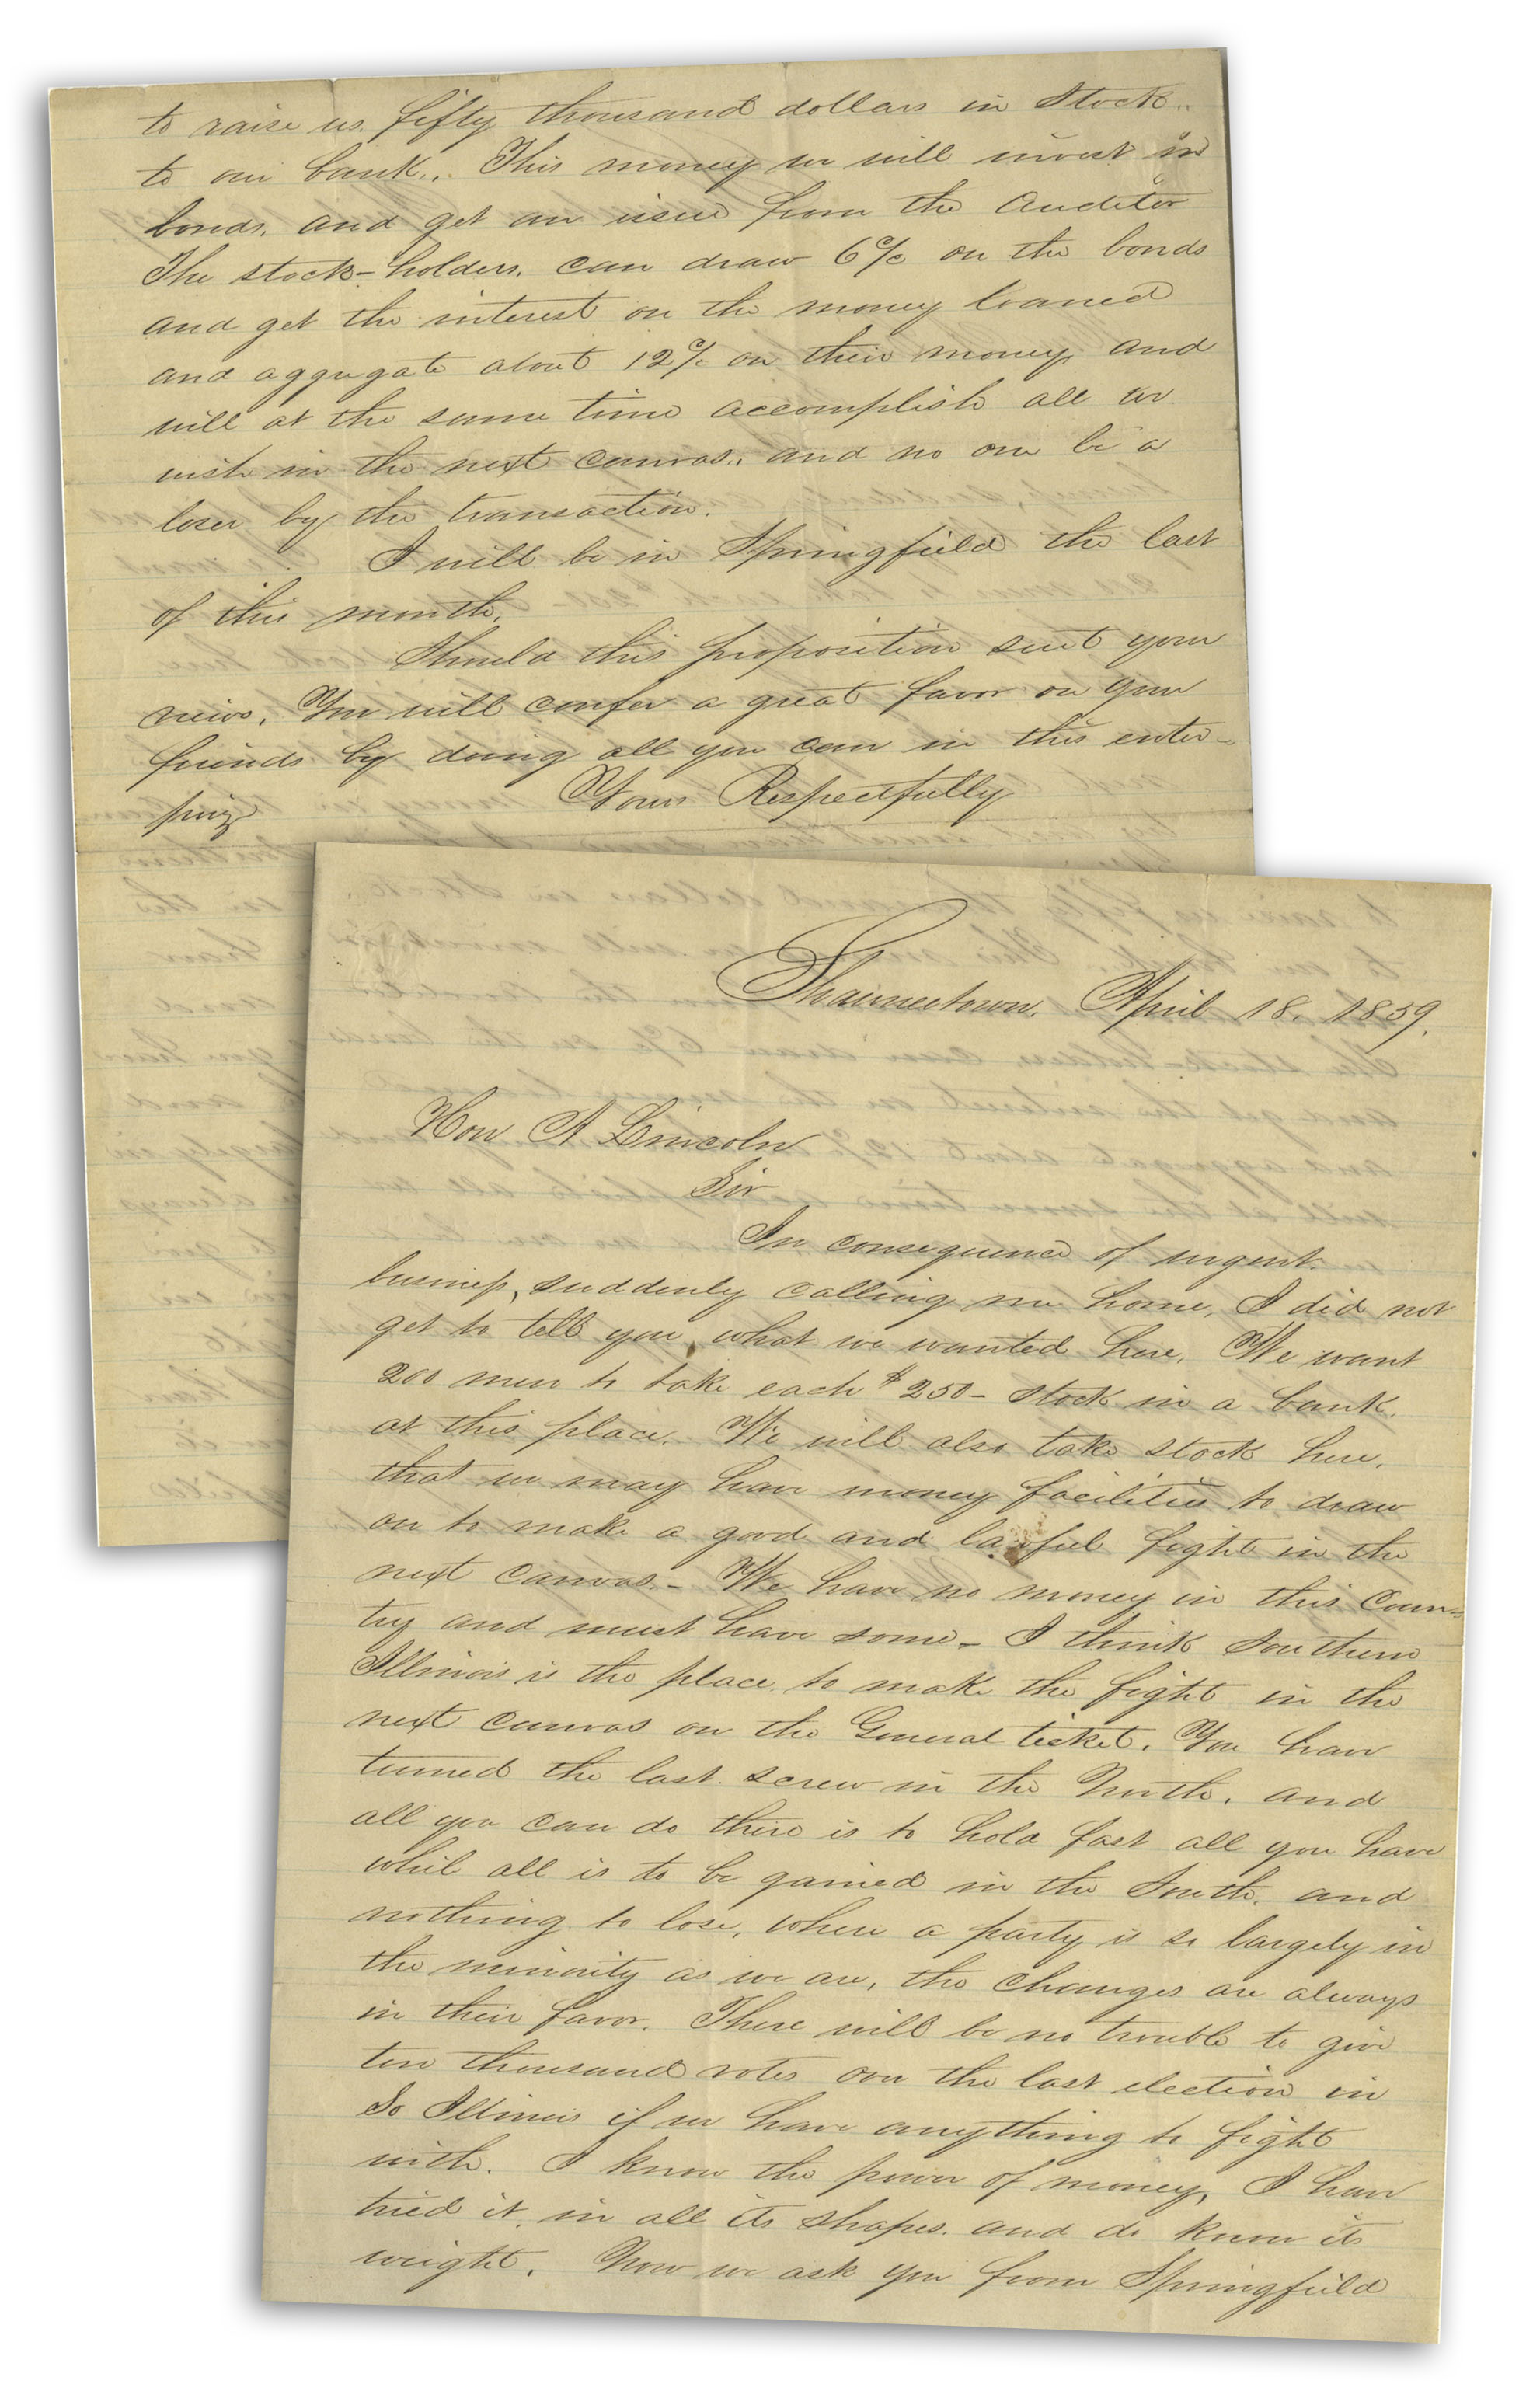 Shawneetown. April 18. 1859.
Hon A Lincoln
Sir
In consequence of urgent
business, suddenly calling me home, I did not
get to tell you, what we wanted here. We want
200 men to take each $250- stock in a bank.
at this place. We will also take stock here.
that we may have money facilities to draw
on to make a good and lawful fight in the
next canvas.- We have no money in this coun=
try and must have some- I think Southern
Illinois is the place to make the fight in the
next canvas on the General ticket. You have
turned the last screw in the North, and
all you can do there is to hold fast all you have
whil all is to be gained in the South. and
nothing to lose, where a party is so largely in
the minority as we are, the changes are always
in their favor. There will be no trouble to give
ten thousand votes over the last election in
So Illinois if we have anything to fight
with. I know the power of money, I have
tried it, in all its shapes. and do know its
weight. Now we ask you from Springfield
to raise us. fifty thousand dollars in stock..
to our bank.. This money we will invest in
bonds. and get an issue from the Auditor
The stock-holders. can draw 6% on the bonds
and get the interest on the money loaned
and aggregate about 12% on their money and
will at the same time accomplish all we
wish in the next canvas.. and no one be a
loser by the transaction.
I will be in Springfield the last
of this month.
Should this proposition suit your
views. You will confer a great favor on your
friends by doing all you can in this enter-
prize
Yours Respectfully